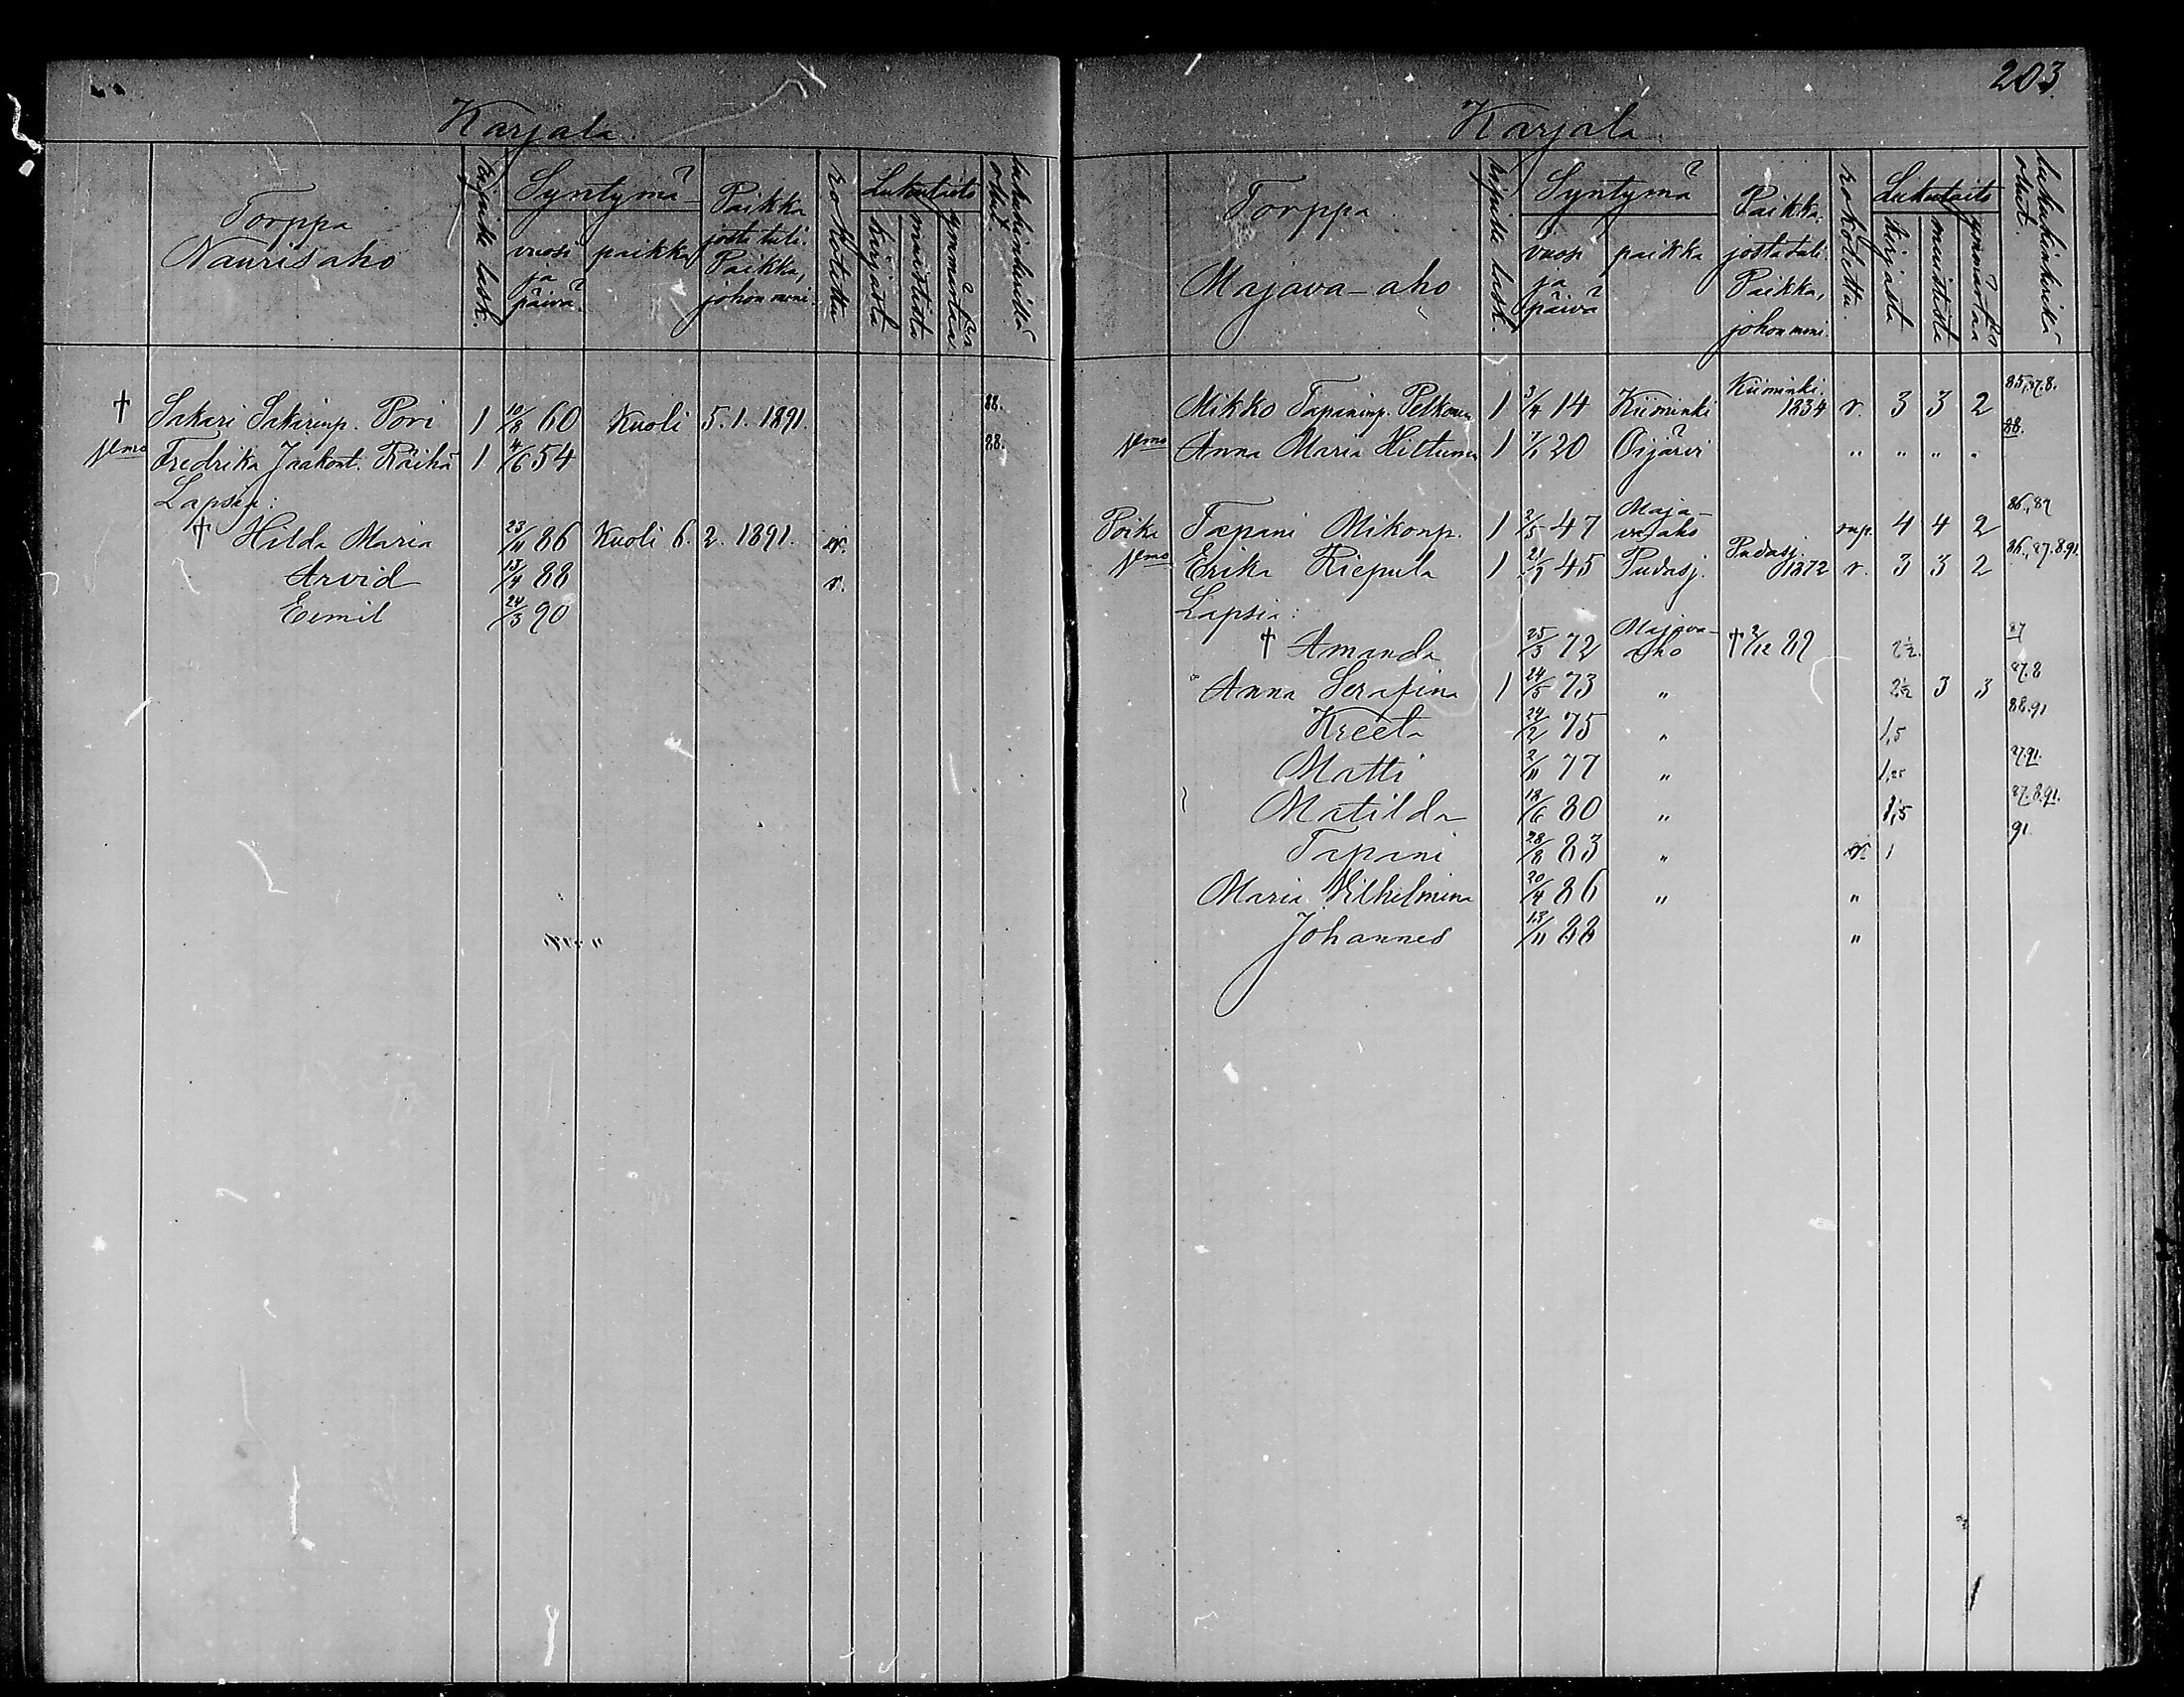 Karjala.
Torppa
Naurisaho
Syntymä
vuosi ja päivä
paikka
Paikka josta tuli.
Paikka, johon meni.
rokotettu
Lukutaito
kirjasta
muistista
lukukinkerillä ollut.
† Sakari Sakarinp. Pori 1 10/8 60 Kuoli 5.1.1891. 88.
Vmo Fredrika Jaakont. Räihä 1 4/6 54 88.
Lapsia:
† Hilda Maria 23/11 86 Kuoli 6.2.1891. r.
Arvid 13/4 88 r.
Eemil 24/3 90
203.
Karjala.
Torppa
Majava-aho
Syntymä
vuosi ja päivä
paikka
Paikka, josta tuli.
Paikka, johon meni.
rokotettu.
Lukutaito
kirjasta
muistista
lukukinkerillä ollut.
Mikko Tapaninp. Pelkonen 1 3/4 14 Kiiminki Kiiminki. 1834 r. 3 3 2 85,87.8.
Vmo Anna Maria Hiltunen 1 7/1 20 Oijärvi " " " " 88.
Poika Tapani Mikonp. 1 2/5 47 Majava-aho rup. 4 4 2 86,,87
Vmo Erika Riepula 1 45 Pudasj. Pudasj. 1872 r. 3 3 2 86,,87.8.91.
Lapsia:
† Amanda 25/3 72 Majava-aho † 2/12 87 2½. 87
Anna Serafina 1 24/5 73 " 2½ 3 3 87.8
Kreeta 24/2 75 " 1,5 88.91
Matti 2/11 77 " 1,25 87.91.
Matilda 18/6 80 " 1,5 87.8.91.
Tapani 28/8 83 " r. 1 91.
Maria Vilhelmina 20/4 86 " "
Johannes 13/11 88 "